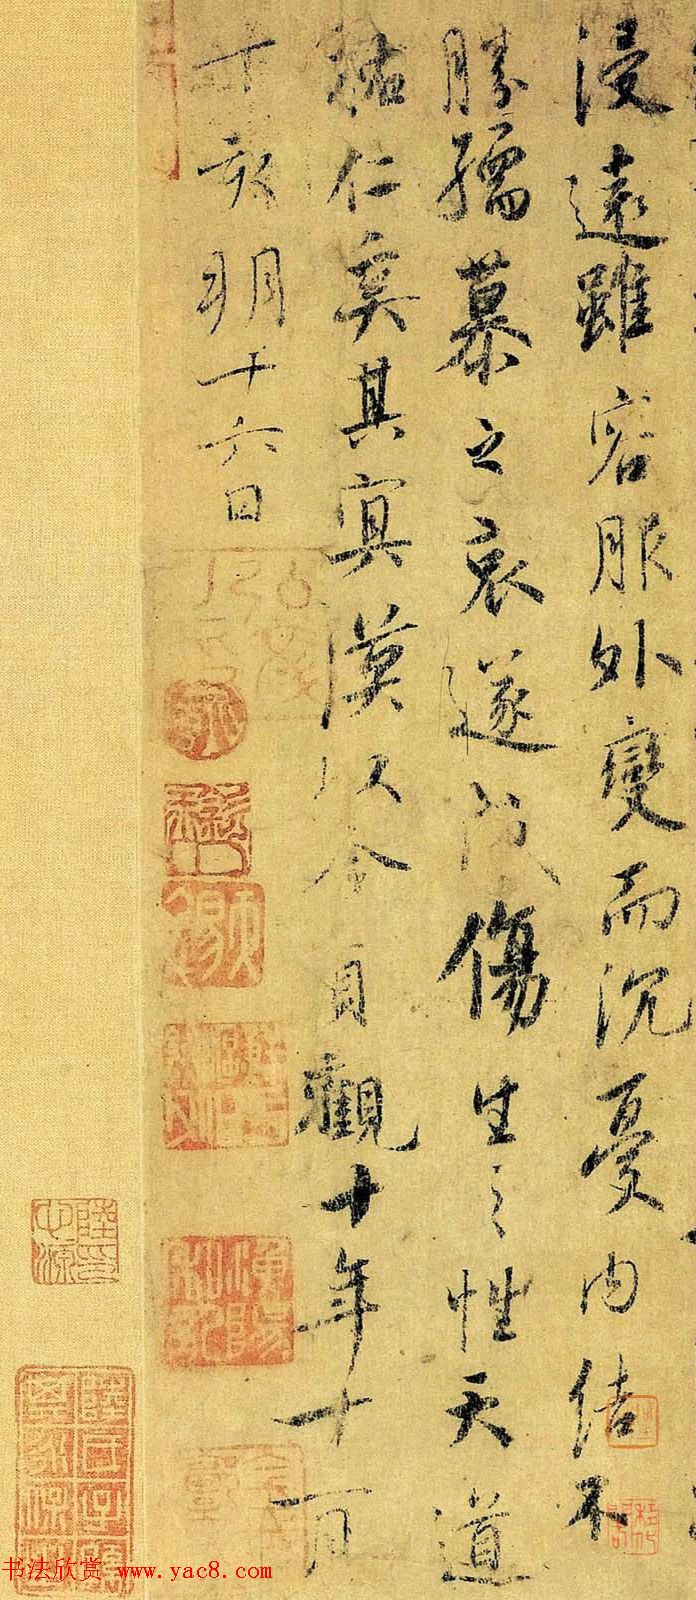 浸遠雖容服外變而沉憂内結不
勝孺慕之哀遂致傷生之性天道
祐仁奚其冥漠以今貞觀十年十一月
丁亥朔十六日
书法欣赏 www.yac8.com